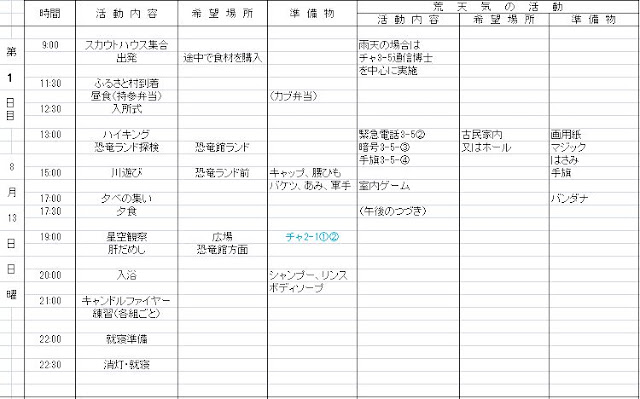 荒天気の活動
時間 活動内容 希望場所 準備物 活動内容 希望場所 準備物
第1日目 8月13日日曜
9:00 スカウトハウス集合 雨天の場合は
出発 途中で食材を購入 チャ3-5通信博士
を中心に実施
11:30 ふるさと村到着
昼食(持参弁当) (カブ弁当)
12:30 入所式
13:00 ハイキング 緊急電話3-5② 古民家内 画用紙
恐竜ランド探検 恐竜館ランド 暗号3-5-③ 又はホール マジック
手旗3-5-④ はさみ
15:00 川遊び 恐竜ランド前 キャップ、腰ひも 手旗
バケツ、あみ、軍手 室内ゲーム
17:00 夕べの集い バンダナ
17:30 夕食 (午後のつづき)
19:00 星空観察 広場 チャ2-1①②
肝だめし 恐竜館方面
20:00 入浴 シャンプー、リンス
ボディソープ
21:00 キャンドルファイヤー
練習(各組ごと)
22:00 就寝準備
22:30 消灯・就寝